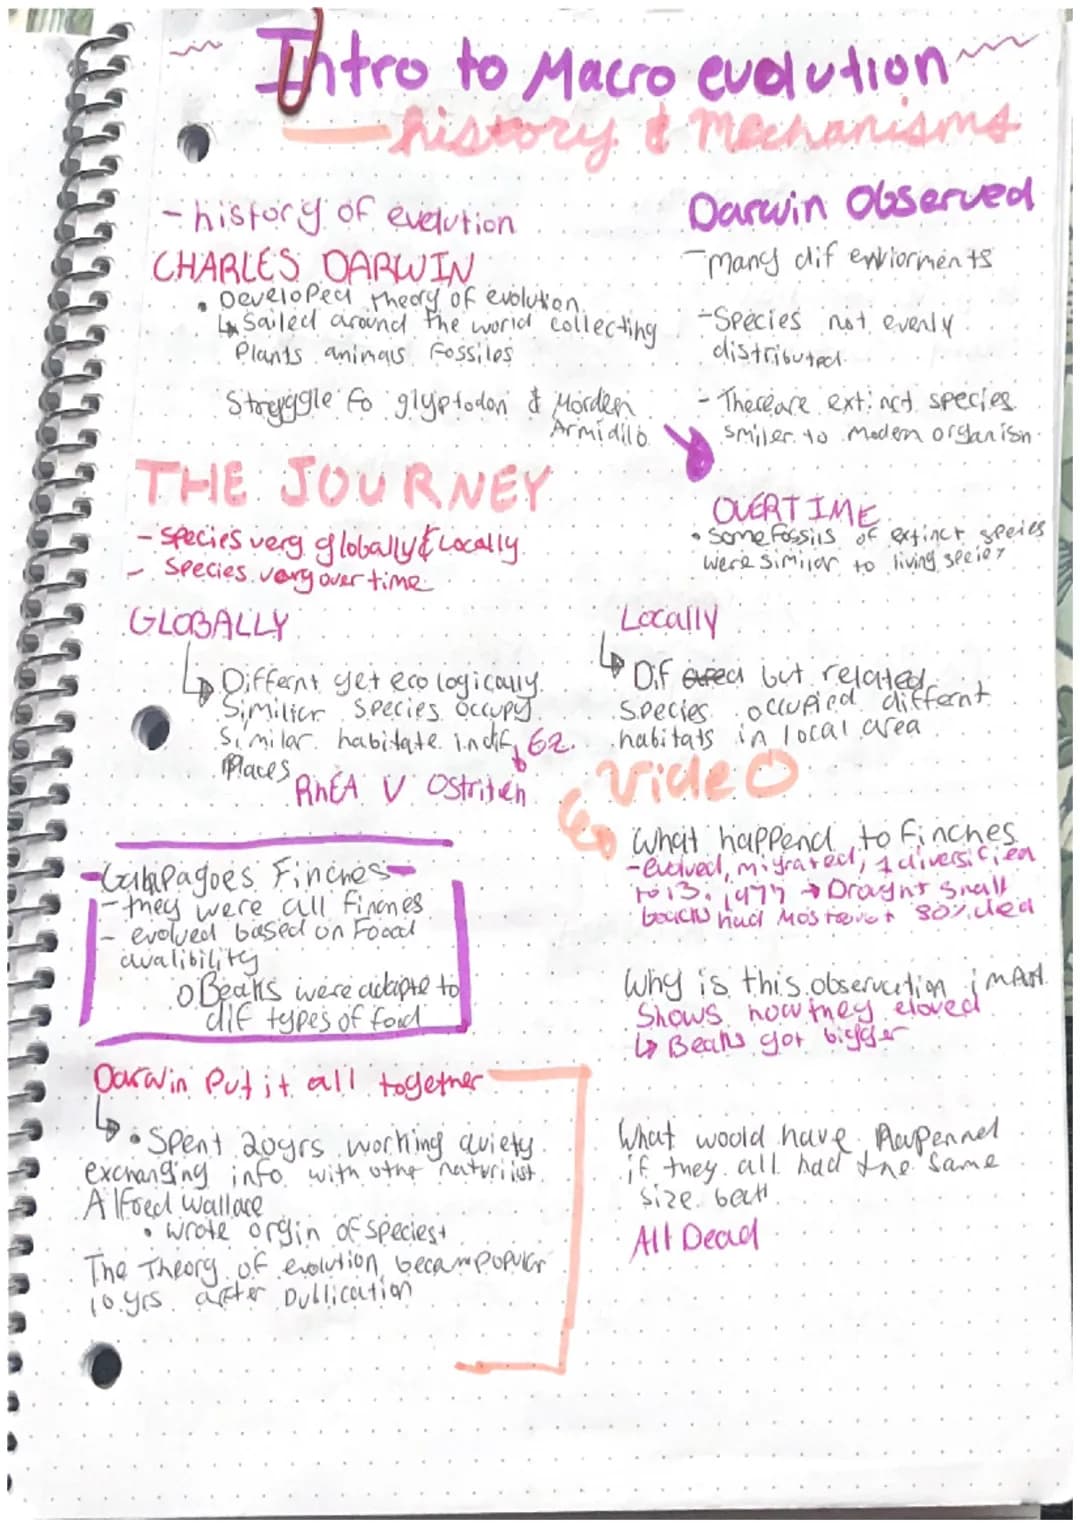 Intro to Macro evolution
history & Mechanisms
- history of evolution
CHARLES DARWIN
• Developed theory of evolution
↳ Sailed around the world collecting
Plants animals Fossiles
Struggle fo glyptodon & Morden
Armidilo
Darwin Observed
- many dif enviorments
- Species not evenly
distributed
- There are extinct species
smiler to modern organism
THE JOURNEY
- species very globally & Locally
- Species vary over time
OVERTIME
• Some fossils of extinct species
were similar to living species
GLOBALLY
↳ Differnt yet ecologically
Similier species occupy
similar habitate in dif
Places
EZ.
RhEA V Ostritch
Locally
↳ Dif but related
species occupied differnt
habitats in local area
Video
What happend to Finches
- evolved, migrated, & diversified
to 13. 1977 → Draght small
beaks had most 80% died
Why is this observation imPort.
Shows how they eloved
↳ Beaks got bigger
What would have
if they all had the same
size beak
All Dead
Galapagoes Finches
- they were all finches
- evolved based on Food
avalibility
o Beaks were adapte to
dif types of food
Darwin Put it all together
↳ • Spent 20yrs working quiety
exchanging info with othe naturilist
Alfred Wallace
• wrote orgin of species
The Theory of evolution becam popular
10 yrs after Publication